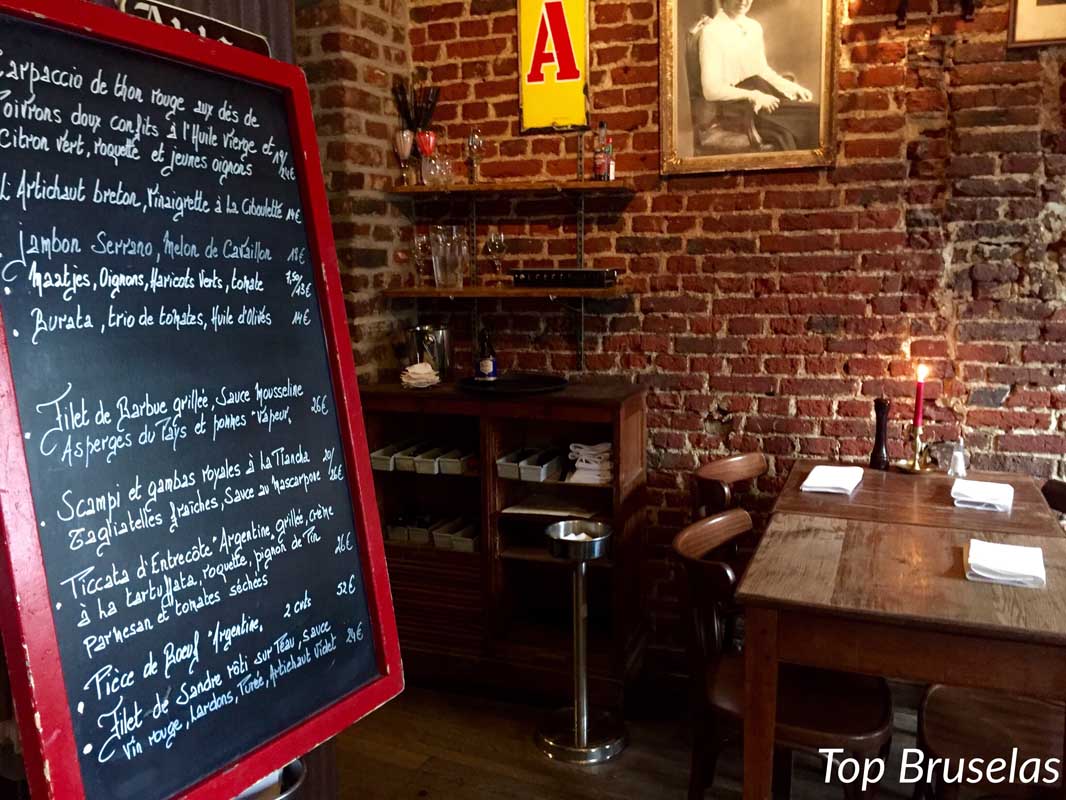 Carpaccio de thon rouge aux dés de
Poivrons doux confits à l'Huile Vierge et
Citron vert, roquette et jeunes oignons 24€
L'Artichaut breton, Vinaigrette à la Ciboulette 14€
Jambon Serrano, Melon de Cavaillon 18€
Maatjes, Oignons, Haricots Verts, tomate 7,50/13€
Burata, trio de tomates, Huile d'Olives 14€
Filet de Barbue grillée, Sauce Mousseline
Asperges du Pays et pommes "Vapeur" 26€
Scampi et gambas royales à la Plancha 20/
Tagliatelles fraîches, Sauce au Mascarpone 26€
Piccata d'Entrecôte "Argentine" grillé, crème
à la tartuffata, roquette, pignon de Pin 26€
Parmesan et tomates séchées
Pièce de Boeuf "Argentine" 2 cvts 52€
Filet de Sandre rôti sur Peau, Sauce 24€
Vin rouge, Lardons, Purée, Artichaut Violet
A
Top Bruselas